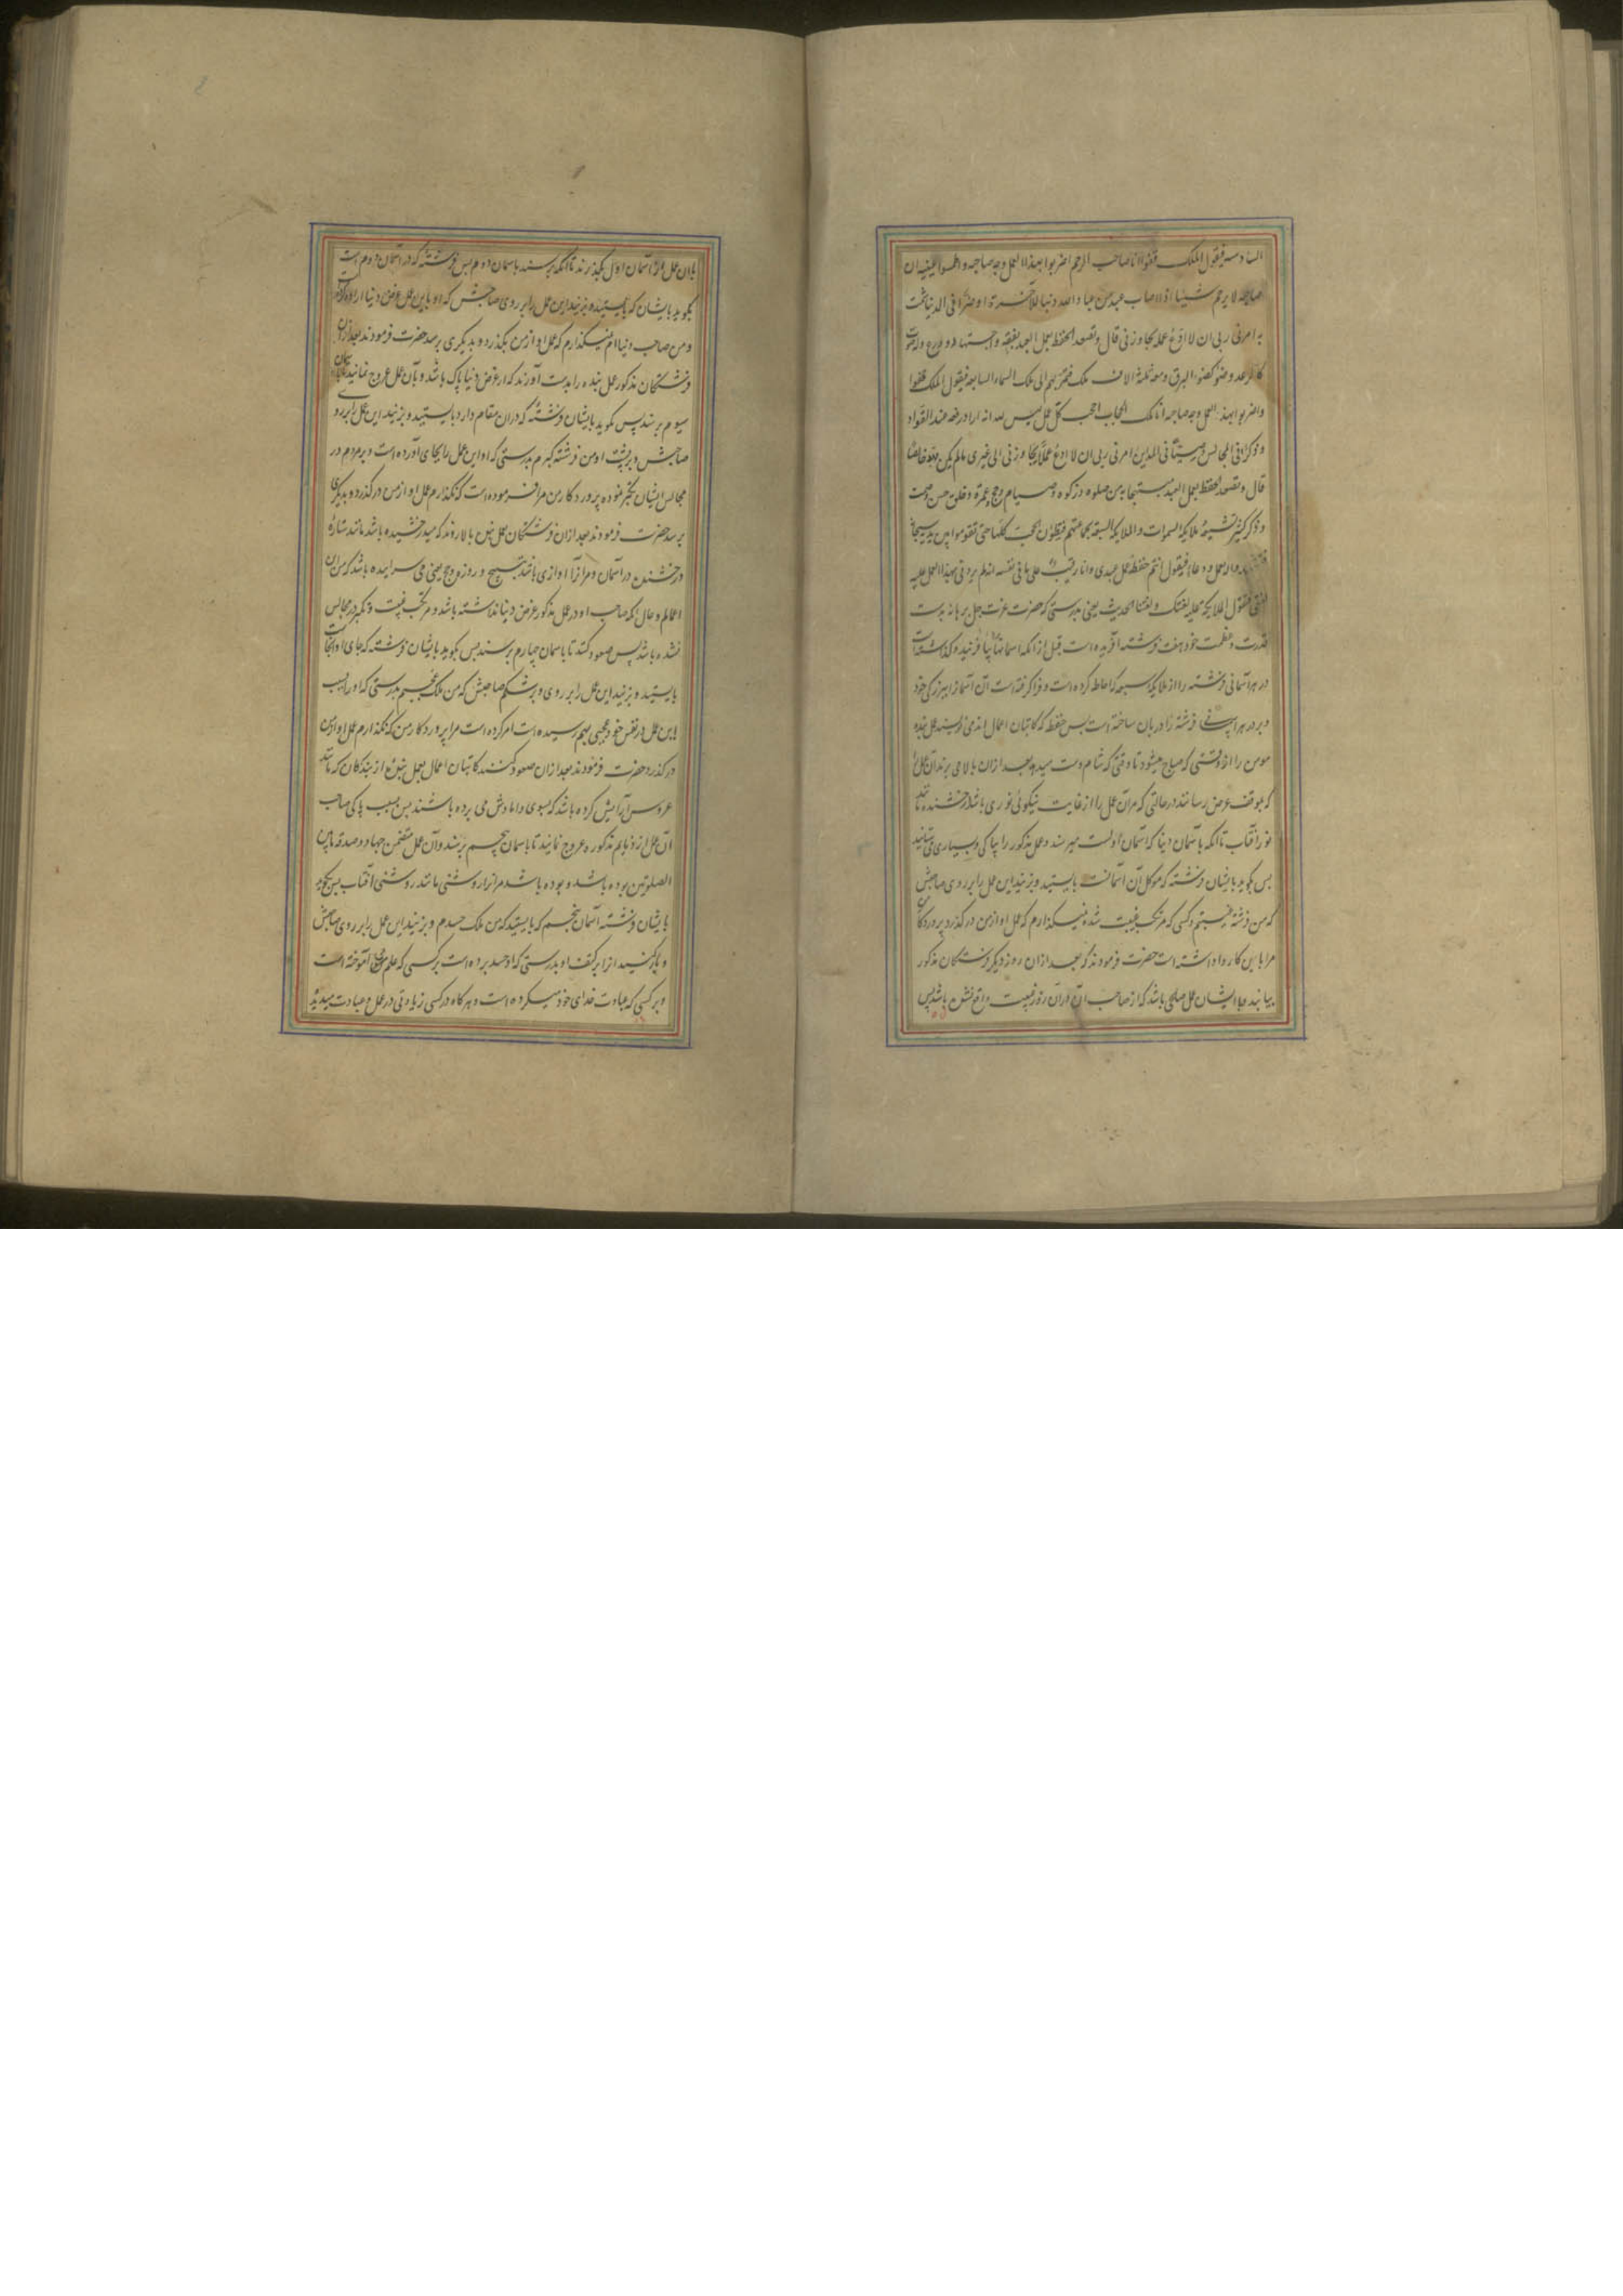 السادسة فیقول الملک قفوا انا صاحب الرحم اضربوا بهذا العمل وجه صاحبه و اطمسوا عینیه ان
صاحبه لا یرحم شیئا اذا اصاب عبد من عباد الله ذنبا للآخرة او ضرا فی الدنیا شمت
به امرنی ربی ان لا ادع عمله یجاوزنی قال و تصعد الحفظة بعمل العبد بفقه و اجتهاد و ورع و له صوت
کالرعد و ضوء کضوء البرق و معه ثلثة الاف ملک فتمر بهم الی ملک السماء السابعة فیقول الملک قفوا
و اضربوا بهذا العمل وجه صاحبه انا ملک الحجاب احجب کل عمل لیس لله انه اراد رفعة عند القواد
و ذکرا فی المجالس و صیتا فی المداین امرنی ربی ان لا ادع عملا یجاوزنی الی غیری مالم یکن لله خالصا
قال و تصعد الحفظة بعمل العبد مبتهجا به من صلوه و زکوه و صیام و حج و عمرة و خلق حسن و صمت
و ذکر کثیر تشیعه ملایکة السموات و الملایکة السبعة بجماعتهم فیطئون الحجب کلها حتی تقوموا بین یدیه سبحانه
و دعاء فیقول انتم حفظة عمل عبدی و انا رقیب علی ما فی نفسه انه لم یردنی بهذا العمل علیه
لعنتی فیقول الملایکة علیه لعنتک و لعنتنا الحدیث یعنی بدرستی که حضرت عزت جل برهانه بدست
قدرت و عظمت خود هفت فرشته آفریده است قبل از آنکه اسمانها بیافریند و گذاشته است
در هر آسمانی فرشته را از ملایکه سبعه که احاطه کرده است و فرا گرفته است آن آسمانرا ببزرگی خود
و بر در هر آسمانی فرشته را دربان ساخته است پس حفظه که کاتبان اعمال اند می نویسند عمل بنده
مومن را از وقتی که صباح میشود تا وقتی که شام دست میدهد بعد از آن بالا می برند آن عمل را
که بموقف عرض رسانند در حالتی که مر آن عمل را از غایت نیکوئی نوری باشد درخشنده مانند
نور آفتاب تا آنکه بآسمان دنیا که آسمان اولست میرسند و عمل مذکور را بپاکی و بسیاری می ستایند
پس بگوید بایشان فرشته که موکل آن آسمانست بایستید و بزنید این عمل را بر روی صاحبش
که من فرشته غیبتم و کسی که مرتکب غیبت شد نمیگذارم که عمل او از من در گذرد پروردگار من
مرا باین کار واداشته است حضرت فرمودند که بعد از آن روز دیگر فرشتگان مذکور
بیایند و با ایشان عمل صالحی باشد که از صاحب آن در آن روز غیبت واقع نشده باشد پس
بآن عمل از آسمان اول بگذرند تا آنکه برسند باسمان دوم پس فرشته که در آسمان دوم است
بگوید بایشان که بایستید و بزنید این عمل را بر روی صاحبش که او باین عمل عرض دنیا اراده کرده است
و من صاحب دنیاام نمیگذارم که عمل او از من بگذرد و بدیگری برسد حضرت فرمودند بعد از آن
فرشتگان مذکور عمل بنده را بدست آورند که از عرض دنیا پاک باشد و بآن عمل عروج نمایند تا بآسمان
سیوم برسند پس بگوید بایشان فرشته که در آن مقام دارد بایستید و بزنید این عمل را بر روی
صاحبش و بر پشت او من فرشته کبرم بدرستی که او این عمل را بجای آورده است و بر مردم در
مجالس ایشان تکبر نموده پروردکار من مرا فرموده است که نگذارم عمل او از من درگذرد و بدیگری
برسد حضرت فرمودند بعد از آن فرشتگان عمل بنده بالا روند که میدرخشیده باشد مانند ستاره
درخشنده در آسمان و مر آنرا آوازی باشد بتسبیح و روزه و حج یعنی می سرائیده باشد که من آن
اعمالم و حال آنکه صاحب او در عمل مذکور عرض دنیا نداشته باشد و مرتکب غیبت و تکبر در مجالس
نشده باشد پس صعود کنند تا باسمان چهارم برسند پس بگوید بایشان فرشته که جای او آنجاست
بایستید و بزنید این عمل را بر روی و بر شکم صاحبش که من ملک عجبم بدرستی که او را بسبب
این عمل در نفس خود عجبی بهم رسیده است امر کرده است مرا پروردکار من که نگذارم عمل او از من
در گذرد حضرت فرمودند بعد از آن صعود کنند کاتبان اعمال بعمل بنده از بندکان که مانند
عروس آرایش کرده باشد که بسوی دامادش می برده باشند پس بسبب پاکی صاحب
آن عمل از ذمایم مذکوره عروج نمایند تا باسمان پنجم برسند و آن عمل متضمن جهاد و صدقه مابین
الصلوتین بوده باشد و بوده باشد مر آنرا روشنی مانند روشنی آفتاب پس بگوید
بایشان فرشته آسمان پنجم که بایستید که من ملک حسدم و بزنید این عمل را بر روی صاحبش
و بار کنید آنرا بر کتف او بدرستی که او حسد برده است بر کسی که علم می آموخته است
و بر کسی که عبادت خدای خود میکرده است و هر گاه در کسی زیادتی در عمل و عبادت میدیده